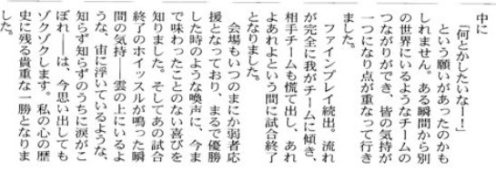 中に
「何とかしたいな!!」
という願いがあったのかも
しれません。ある瞬間から別
の世界にいるようなチームの
つながりができ、皆の気持が
一つになり点が重なって行き
ました。
ファインプレイ続出。流れ
が完全に我がチームに傾き、
相手チームも慌て出し、あれ
よあれよという間に試合終了
となりました。
会場もいつのまにか弱者応
援となっており、まるで優勝
した時のような喚声に、今ま
で味わったことのない喜びを
知りました。そしてあの試合
終了のホイッスルが鳴った瞬
間の気持——雲の上にいるよ
うな、宙に浮いているような、
知らず知らずのうちに涙がこ
ぼれ——は、今思い出しても
ゾクゾクします。私の心の歴
史に残る貴重な一勝となりま
した。